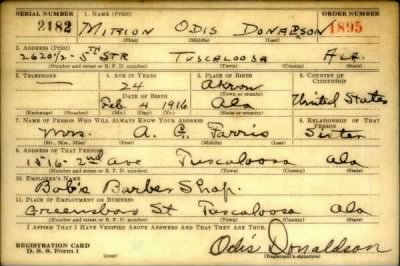 SERIAL NUMBER 1. NAME (Print) ORDER NUMBER
2182 MITRION ODIS DONALDSON 1895
(First) (Middle) (Last)
2. ADDRESS (Print)
2620 1/2 - 5TH STR TUSCALOOSA ALA.
(Number and street or R. F. D. number) (Town) (County) (State)
3. TELEPHONE 4. AGE IN YEARS 5. PLACE OF BIRTH 6. COUNTRY OF CITIZENSHIP
24 Akron
DATE OF BIRTH (Town or county)
Feb 4 1916 Ala United States
(Exchange) (Number) (Mo.) (Day) (Yr.) (State or country)
7. NAME OF PERSON WHO WILL ALWAYS KNOW YOUR ADDRESS 8. RELATIONSHIP OF THAT PERSON
Mrs. A. Farris Sister
(Mr., Mrs., Miss) (First) (Middle) (Last)
9. ADDRESS OF THAT PERSON
2nd Ave Tuscaloosa Ala
(Number and street or R. F. D. number) (Town) (County) (State)
10. EMPLOYER'S NAME
Bob's Barber Shop.
11. PLACE OF EMPLOYMENT OR BUSINESS
Greensboro St Tuscaloosa Ala
(Number and street or R. F. D. number) (Town) (County) (State)
I AFFIRM THAT I HAVE VERIFIED ABOVE ANSWERS AND THAT THEY ARE TRUE.
REGISTRATION CARD
D. S. S. Form 1 Odis Donaldson
(Registrant's signature)